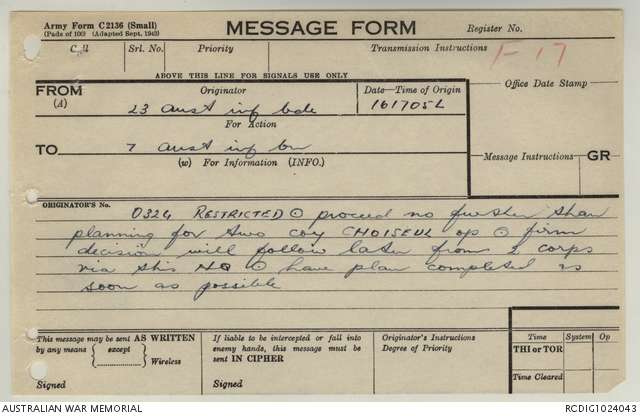 Army Form C2136 (Small)
(Pads of 100) (Adapted Sept. 1943)
MESSAGE FORM
Register No.
Call
Srl. No.
Priority
Transmission Instructions
F-17
ABOVE THIS LINE FOR SIGNALS USE ONLY
Office Date Stamp
FROM
(A)
Originator
Date—Time of Origin
23 Aust inf bde
161705L
For Action
TO
7 Aust inf bn
(w) For Information (INFO.)
Message Instructions
GR
ORIGINATOR'S No.
0324 RESTRICTED ⊙ proceed no further than
planning for two coy CHOISEUL op ⊙ firm
decision will follow later from 2 corps
via this HQ ⊙ have plan completed as
soon as possible
This message may be sent AS WRITTEN
by any means
except
Wireless
Signed
If liable to be intercepted or fall into
enemy hands, this message must be
sent IN CIPHER
Signed
Originator's Instructions
Degree of Priority
Time
System
Op
THI or TOR
Time Cleared
AUSTRALIAN WAR MEMORIAL
RCDIG1024043